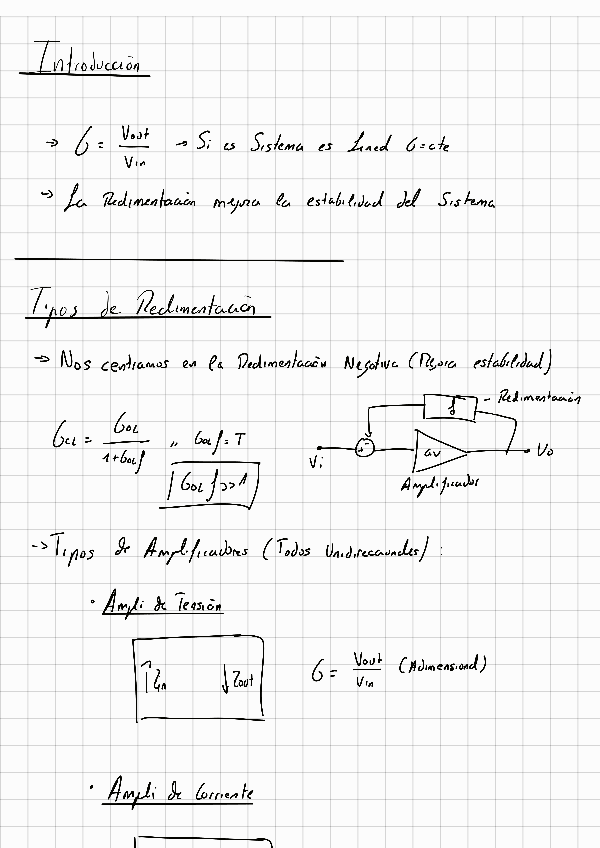 Introducción
→ G = Vout / Vin → Si es Sistema es Lineal G=cte
→ La Redimentación mejora la estabilidad del Sistema
Tipos de Redimentación
→ Nos centramos en la Redimentación Negativa (Mejora estabilidad)
f - Redimentación
GCL = GOL / 1+GOLf ,, GOLf = T
|GOLf| >> 1
Vi + - av Vo
Amplificador
→ Tipos de Amplificadores (Todos Unidireccionales) :
· Ampli de Tensión
↑Zin ↓Zout G = Vout / Vin (Adimensional)
· Ampli de Corriente